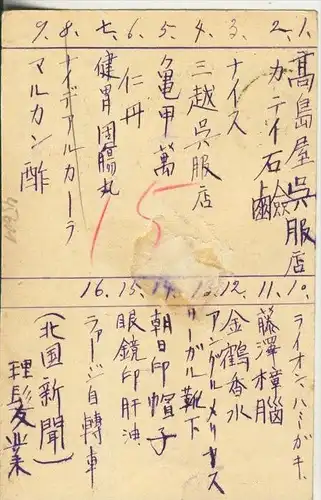 1. 髙島屋呉服店
2. カテイ石鹼
3. ナイス
4. 三越呉服店
5. 亀甲萬
6. 仁丹
七. 健胃固腸丸
8. アイデアルカーラ
9. マルカン酢
15
10. ライオンハミガキ.
11. 藤澤樟腦
12. 金鶴香水
13. アングルメリヤス
14. リーガル靴下
朝日印帽子
15. 眼鏡印肝油
16. ラァージ自轉車
(北国新聞)
理髪業